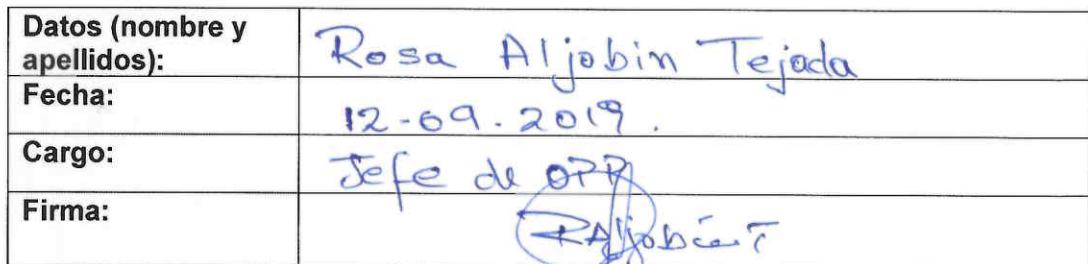 Datos (nombre y
apellidos):
Rosa Aljobin Tejada
Fecha:
12-09.2019.
Cargo:
Jefe de OPP
Firma:
RAljobínT